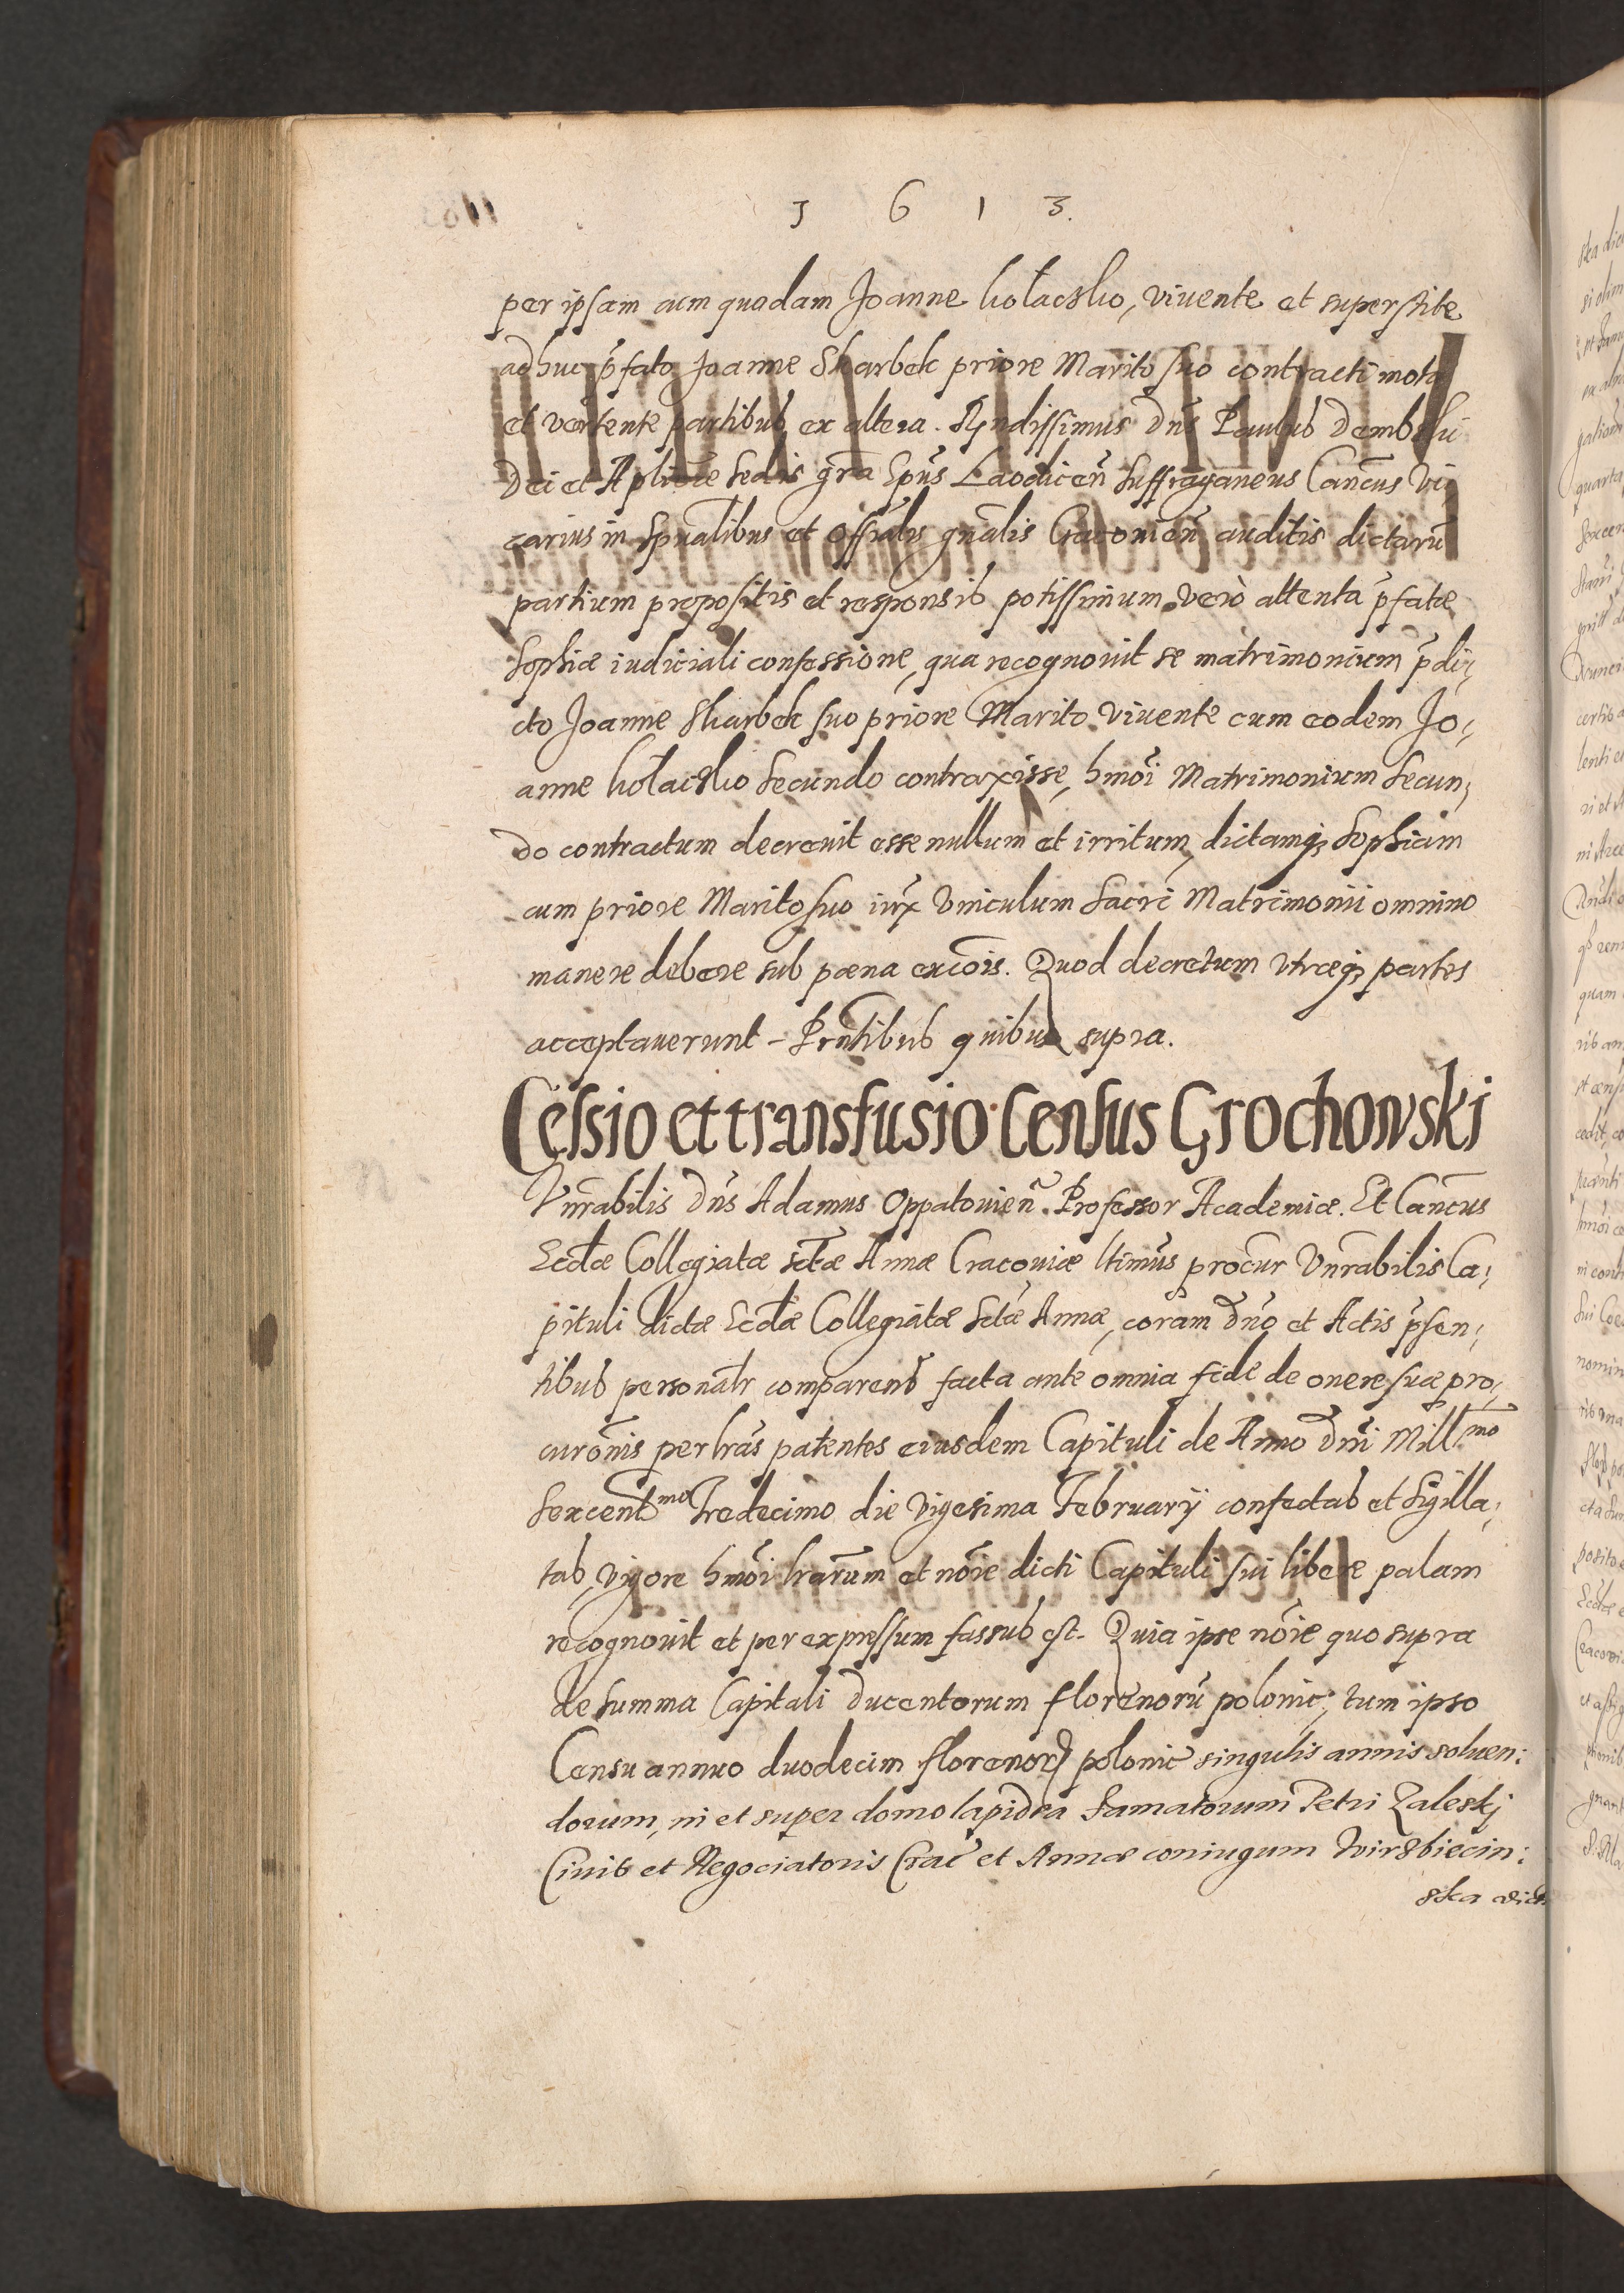 1 6 1 3.
per ipsam cum quodam Joanne kołaczko, vivente et superstite
adhuc p̄fato Joanne Skarbek priore Marito suo contracti mota
et vertente partibus ex altera. Rṇdissimus Dn̄s Paulus Dembski
Dei et Aplicae sedis gr̄a Ep̄us Laodiceñ Suffraganeus Can̄cus Vi,
carius in Spūalibus et Offīalis gn̄alis Cracovieñ auditis dictarū
partium propositis et responsis potissimum verò attenta p̄fatæ
Sophiæ iudiciali confessione, qua recognovit se matrimonium p̄di,
cto Joanne Skarbek suo priore Marito vivente cum eodem Jo,
anne kołaczko secundo contraxisse, hmōi Matrimonium secun,
do contractum decrevit esse nullum et irritum, dictamq; Sophiam
cum priore Marito suo iux̄ Vinculum Sacri Matrimonii omnino
manere debere sub pœna excōis. Quod decretum utræq; partes
acceptaverunt - Pn̄tibus quibus supra.
Cessio et transfusio Census Grochowski
Vn̄rabilis Dn̄s Adamus Oppatovieñ. Professor Academiæ. Et Can̄cus
Eccłæ Collegiatæ sctæ Annæ Cracoviæ ltimūs procūr Vn̄rabilis Ca,
pituli dictæ Eccłæ Collegiatæ Sctæ Annæ, coram Dn̄o et Actis p̄sen,
tibus personałr comparens facta ante omnia fide de onere suæ pro,
curōnis per lrās patentes eiusdem Capituli de Anno Dn̄i Mill<sup>mo</sup>
Sexcent<sup>mo</sup> Tredecimo die Vigesima Februarÿ confectas et Sigilla,
tas, vigore hmōi lrārum et nōie dicti Capituli sui libere palam
recognovit et per expressum fassus est. Quia ipse nōie quo supra
de Summa Capitali ducentorum florenorū polonic, tum ipso
Censu annuo duodecim florenorꝝ polonic singulis annis solven:
dorum, in et super domo lapidea Famatorum Petri Zaleskj
Civis et Negociatoris Crac̄ et Annæ coniugum Wirzbiecin:
ska dict